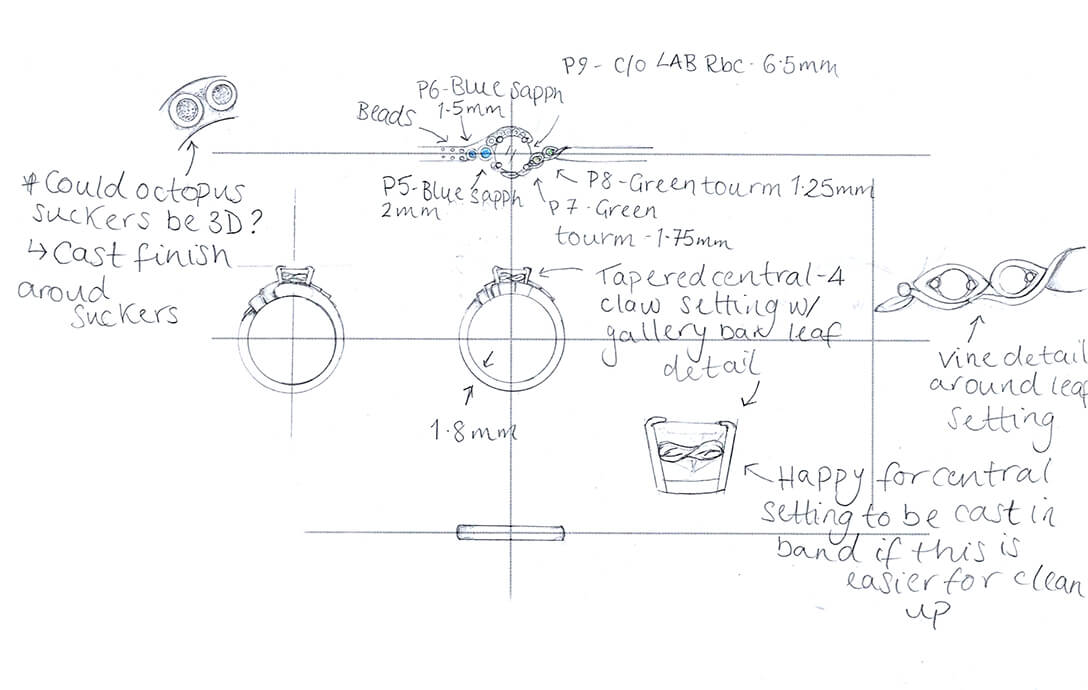 P9 - C/O LAB Rbc - 6.5mm
P6-Blue sapph
1.5mm
Beads
P5-Blue sapph
2mm
P8-Green tourm 1.25mm
P7-Green
tourm-1.75mm
* Could octopus
suckers be 3D?
↳ Cast finish
aroud
suckers
Tapered central-4
claw setting w/
gallery bar leaf
detail
1.8mm
vine detail
around leaf
setting
Happy for central
setting to be cast in
band if this is
easier for clean
up